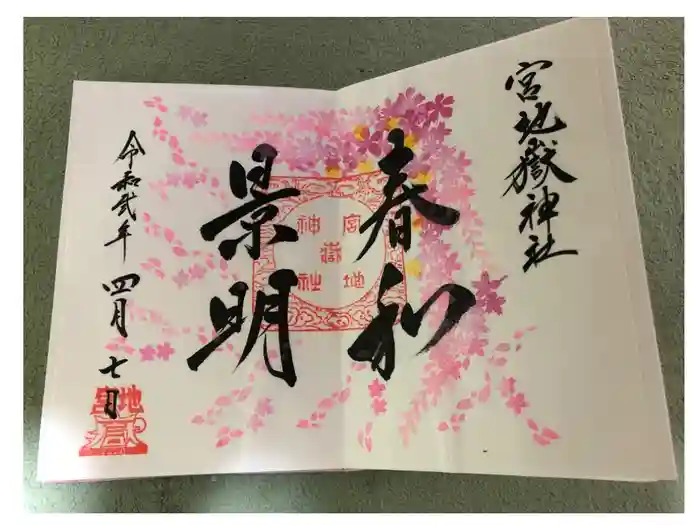 宮地嶽神社
春和
景明
宮地嶽神社
令和弐年 四月 七日
宮地嶽